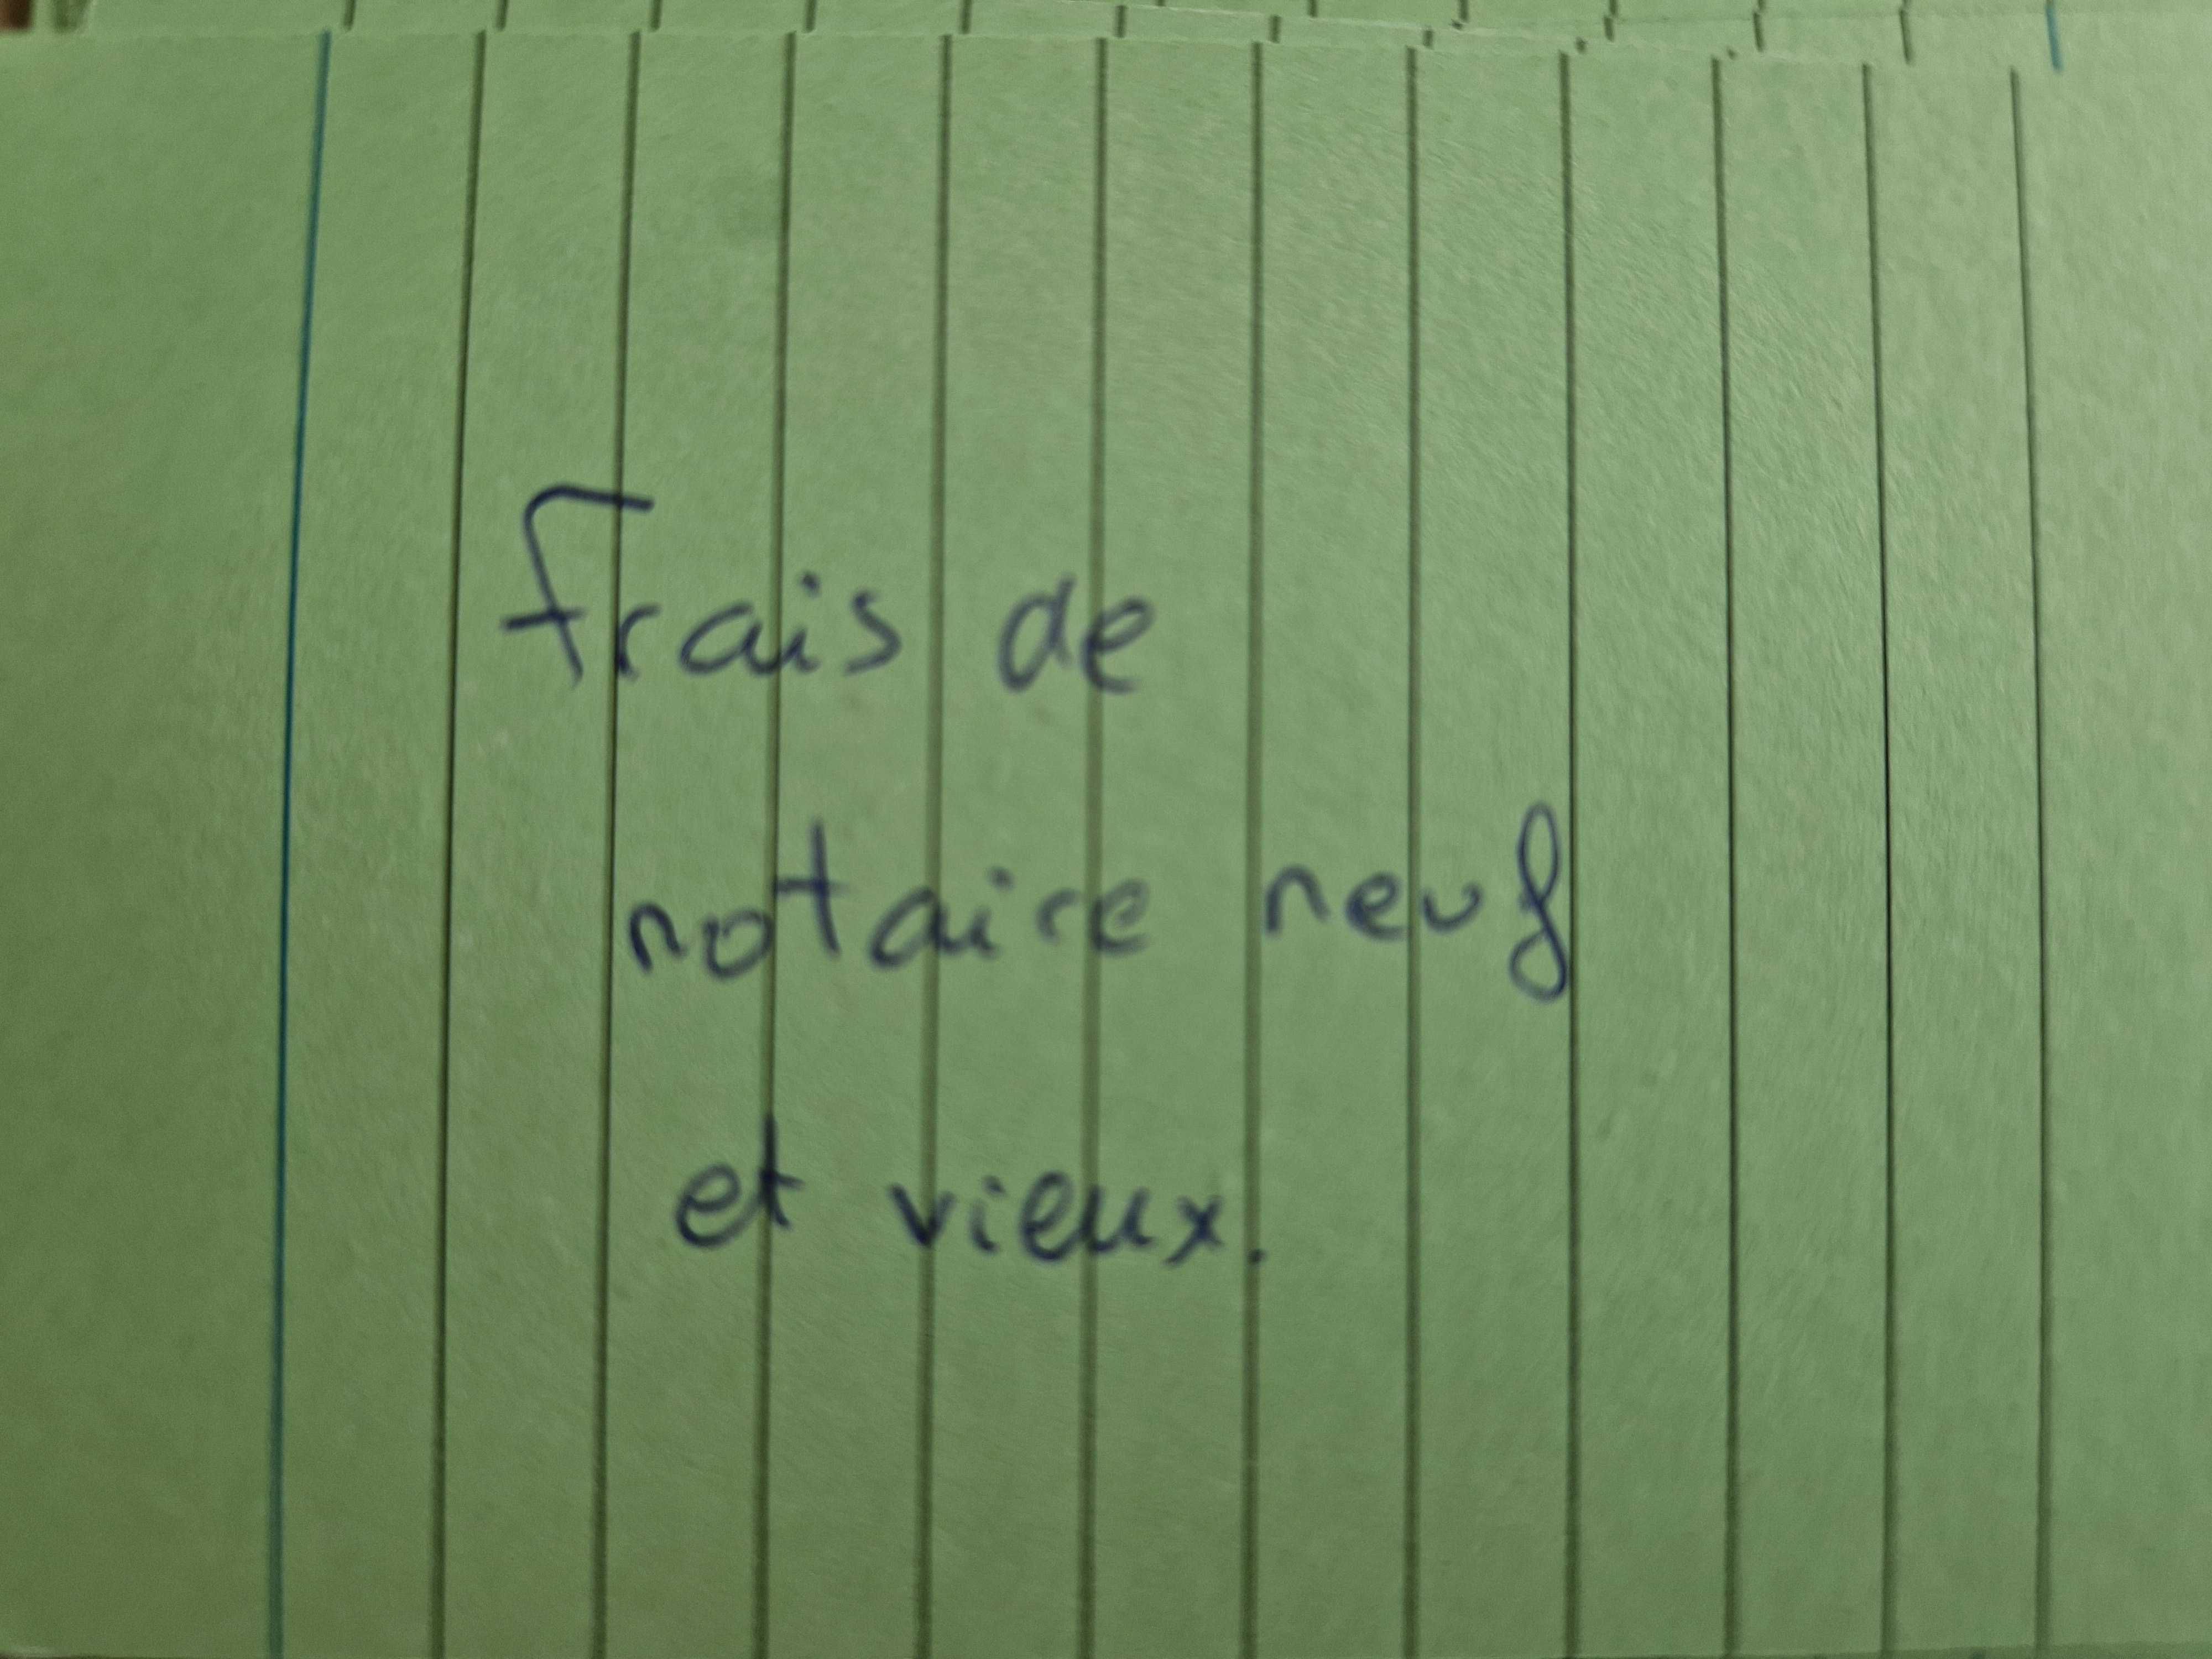 Frais de
notaire neuf
et vieux.